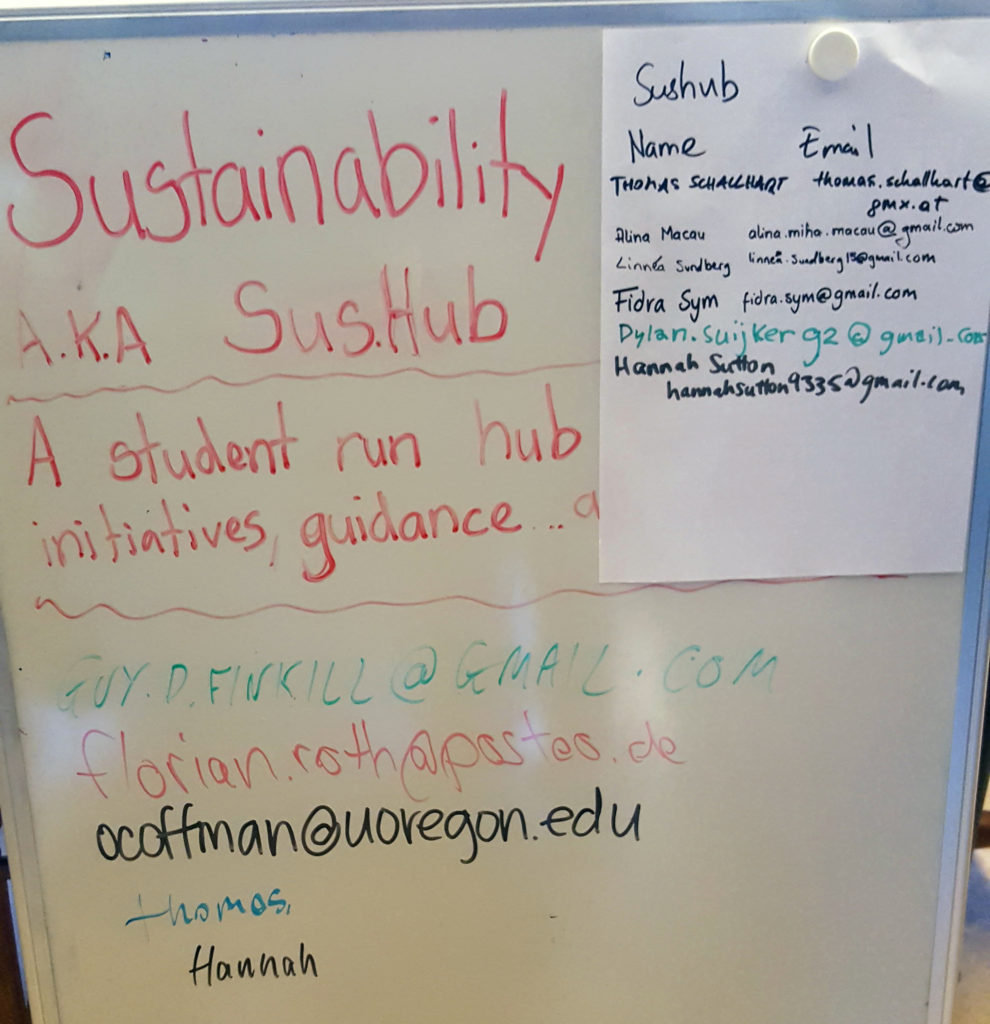 Sustainability
A.K.A SusHub
A student run hub
initiatives, guidance... a
GUY.D.FINKILL@GMAIL.COM
florian.roth@posteo.de
ocoffman@uoregon.edu
thomas,
Hannah
Sushub
Name Email
THOMAS SCHALLHART thomas.schallhart@
gmx.at
Alina Macau alina.miha.macau@gmail.com
Linnéa Sundberg linnea.sundberg15@gmail.com
Fidra Sym fidra.sym@gmail.com
Dylan.suijker92@gmail.com
Hannah Sutton
hannahsutton9335@gmail.com